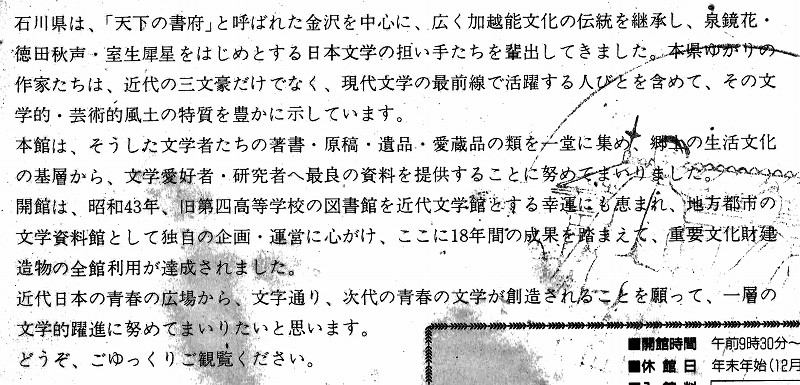 石川県は、「天下の書府」と呼ばれた金沢を中心に、広く加越能文化の伝統を継承し、泉鏡花・
徳田秋声・室生犀星をはじめとする日本文学の担い手たちを輩出してきました。本県ゆかりの
作家たちは、近代の三文豪だけでなく、現代文学の最前線で活躍する人びとを含めて、その文
学的・芸術的風土の特質を豊かに示しています。
本館は、そうした文学者たちの著書・原稿・遺品・愛蔵品の類を一堂に集め、郷土の生活文化
の基層から、文学愛好者・研究者へ最良の資料を提供することに努めてまいりました。
開館は、昭和43年、旧第四高等学校の図書館を近代文学館とする幸運にも恵まれ、地方都市の
文学資料館として独自の企画・運営に心がけ、ここに18年間の成果を踏まえて、重要文化財建
造物の全館利用が達成されました。
近代日本の青春の広場から、文字通り、次代の青春の文学が創造されることを願って、一層の
文学的躍進に努めてまいりたいと思います。
どうぞ、ごゆっくりご観覧ください。
■開館時間 午前9時30分〜
■休館日 年末年始(12月